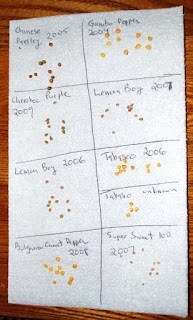 Chinese 2005
Parsley
Gambo Pepper
2004
Cherokee Purple
2009
Lemon Boy 2007
Lemon Boy 2006
Tabasco 2006
Tabasco unknown
Bulgarian Carrot Pepper
2008
Super Sweet 100
2007